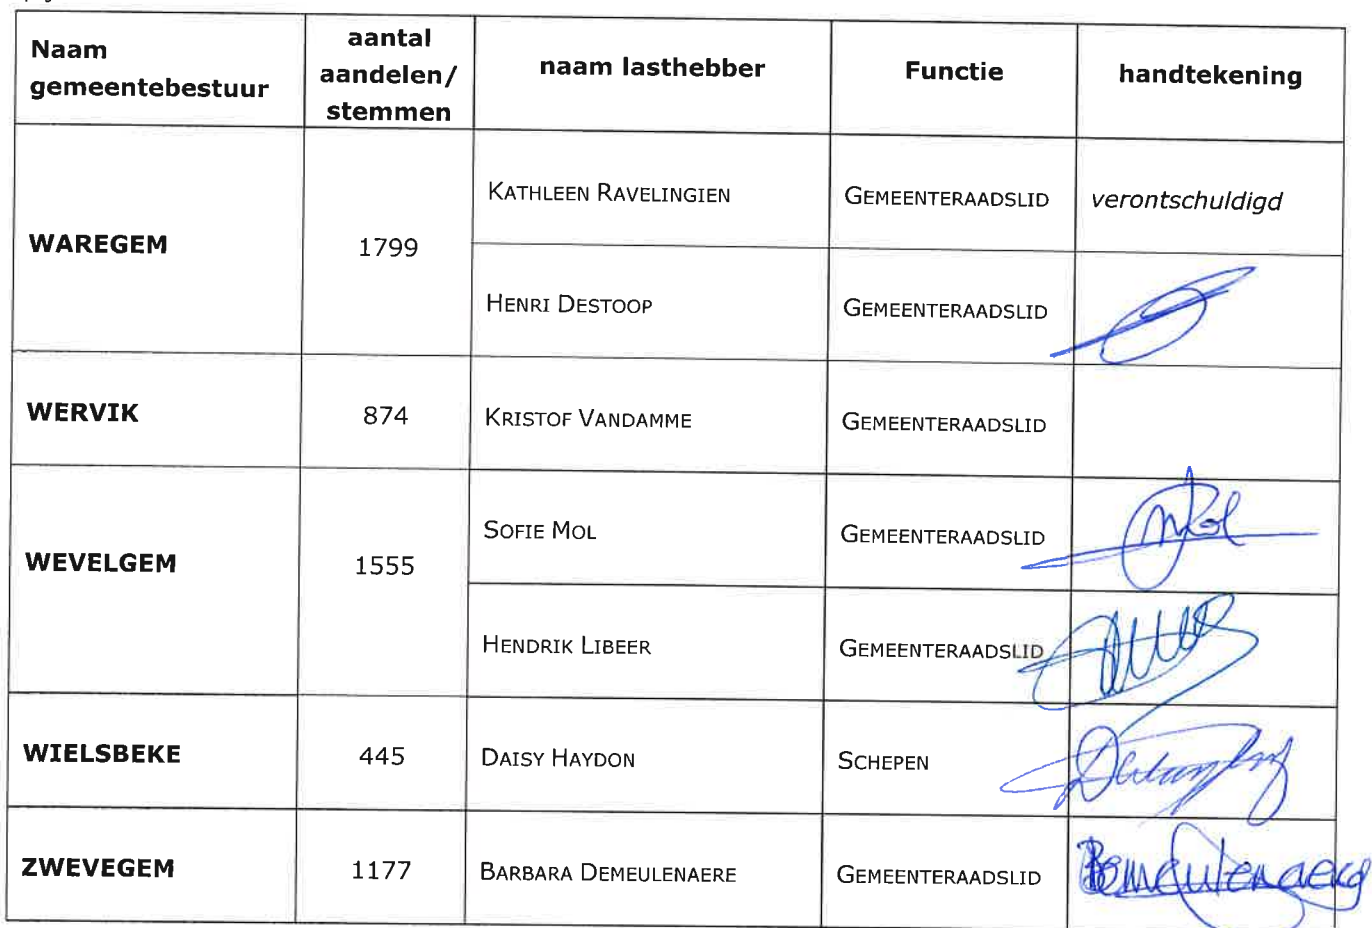 Naam gemeentebestuur | aantal aandelen/ stemmen | naam lasthebber | Functie | handtekening
WAREGEM | 1799 | KATHLEEN RAVELINGIEN | GEMEENTERAADSLID | verontschuldigd
HENRI DESTOOP | GEMEENTERAADSLID
WERVIK | 874 | KRISTOF VANDAMME | GEMEENTERAADSLID
WEVELGEM | 1555 | SOFIE MOL | GEMEENTERAADSLID
HENDRIK LIBEER | GEMEENTERAADSLID
WIELSBEKE | 445 | DAISY HAYDON | SCHEPEN
ZWEVEGEM | 1177 | BARBARA DEMEULENAERE | GEMEENTERAADSLID